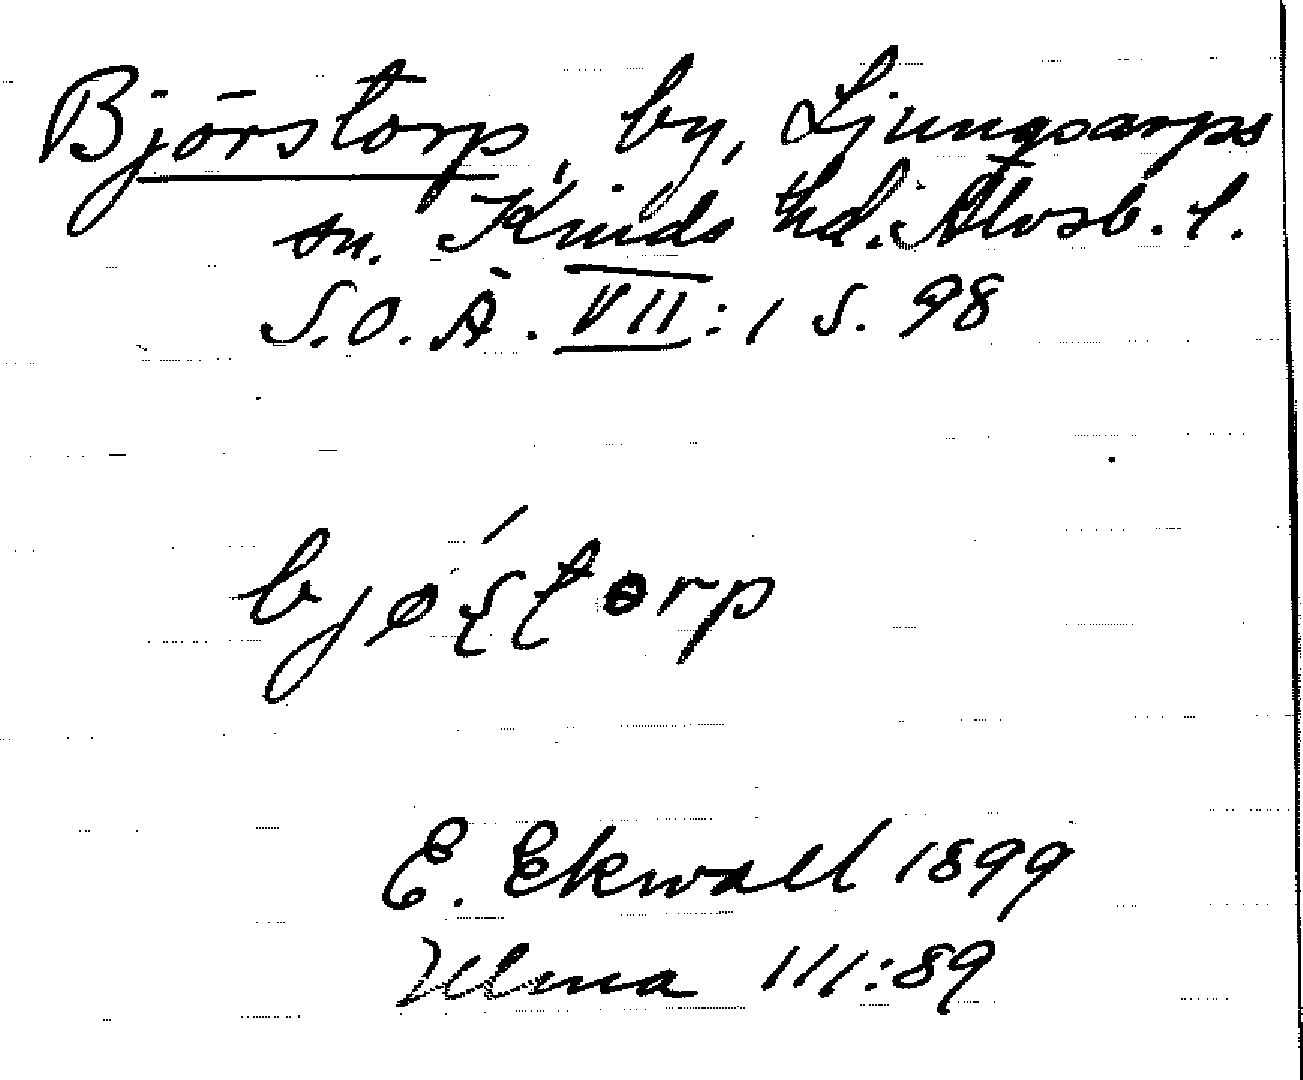 Björstorp, by, Ljungsarps
sn. Kinds hd. Älvsb. l.
S.O.Ä. VII:1 s. 98
bjøştɵrp
E. Ekwall 1899
Ulma 111:89